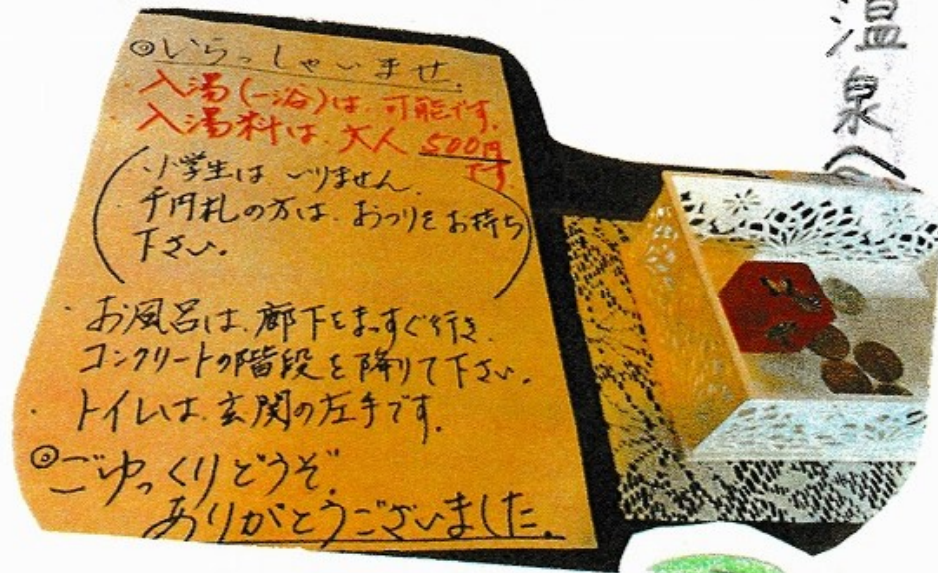 ◎いらっしゃいませ.
・入湯(一浴)は、可能です.
・入湯料は、大人 500円
です
・小学生は いりません.
・千円札の方は、おつりをお持ち
下さい.
・お風呂は、廊下をまっすぐ行き.
コンクリートの階段を降りて下さい.
・トイレは、玄関の左手です.
◎ごゆっくりどうぞ.
ありがとうございました.
温泉